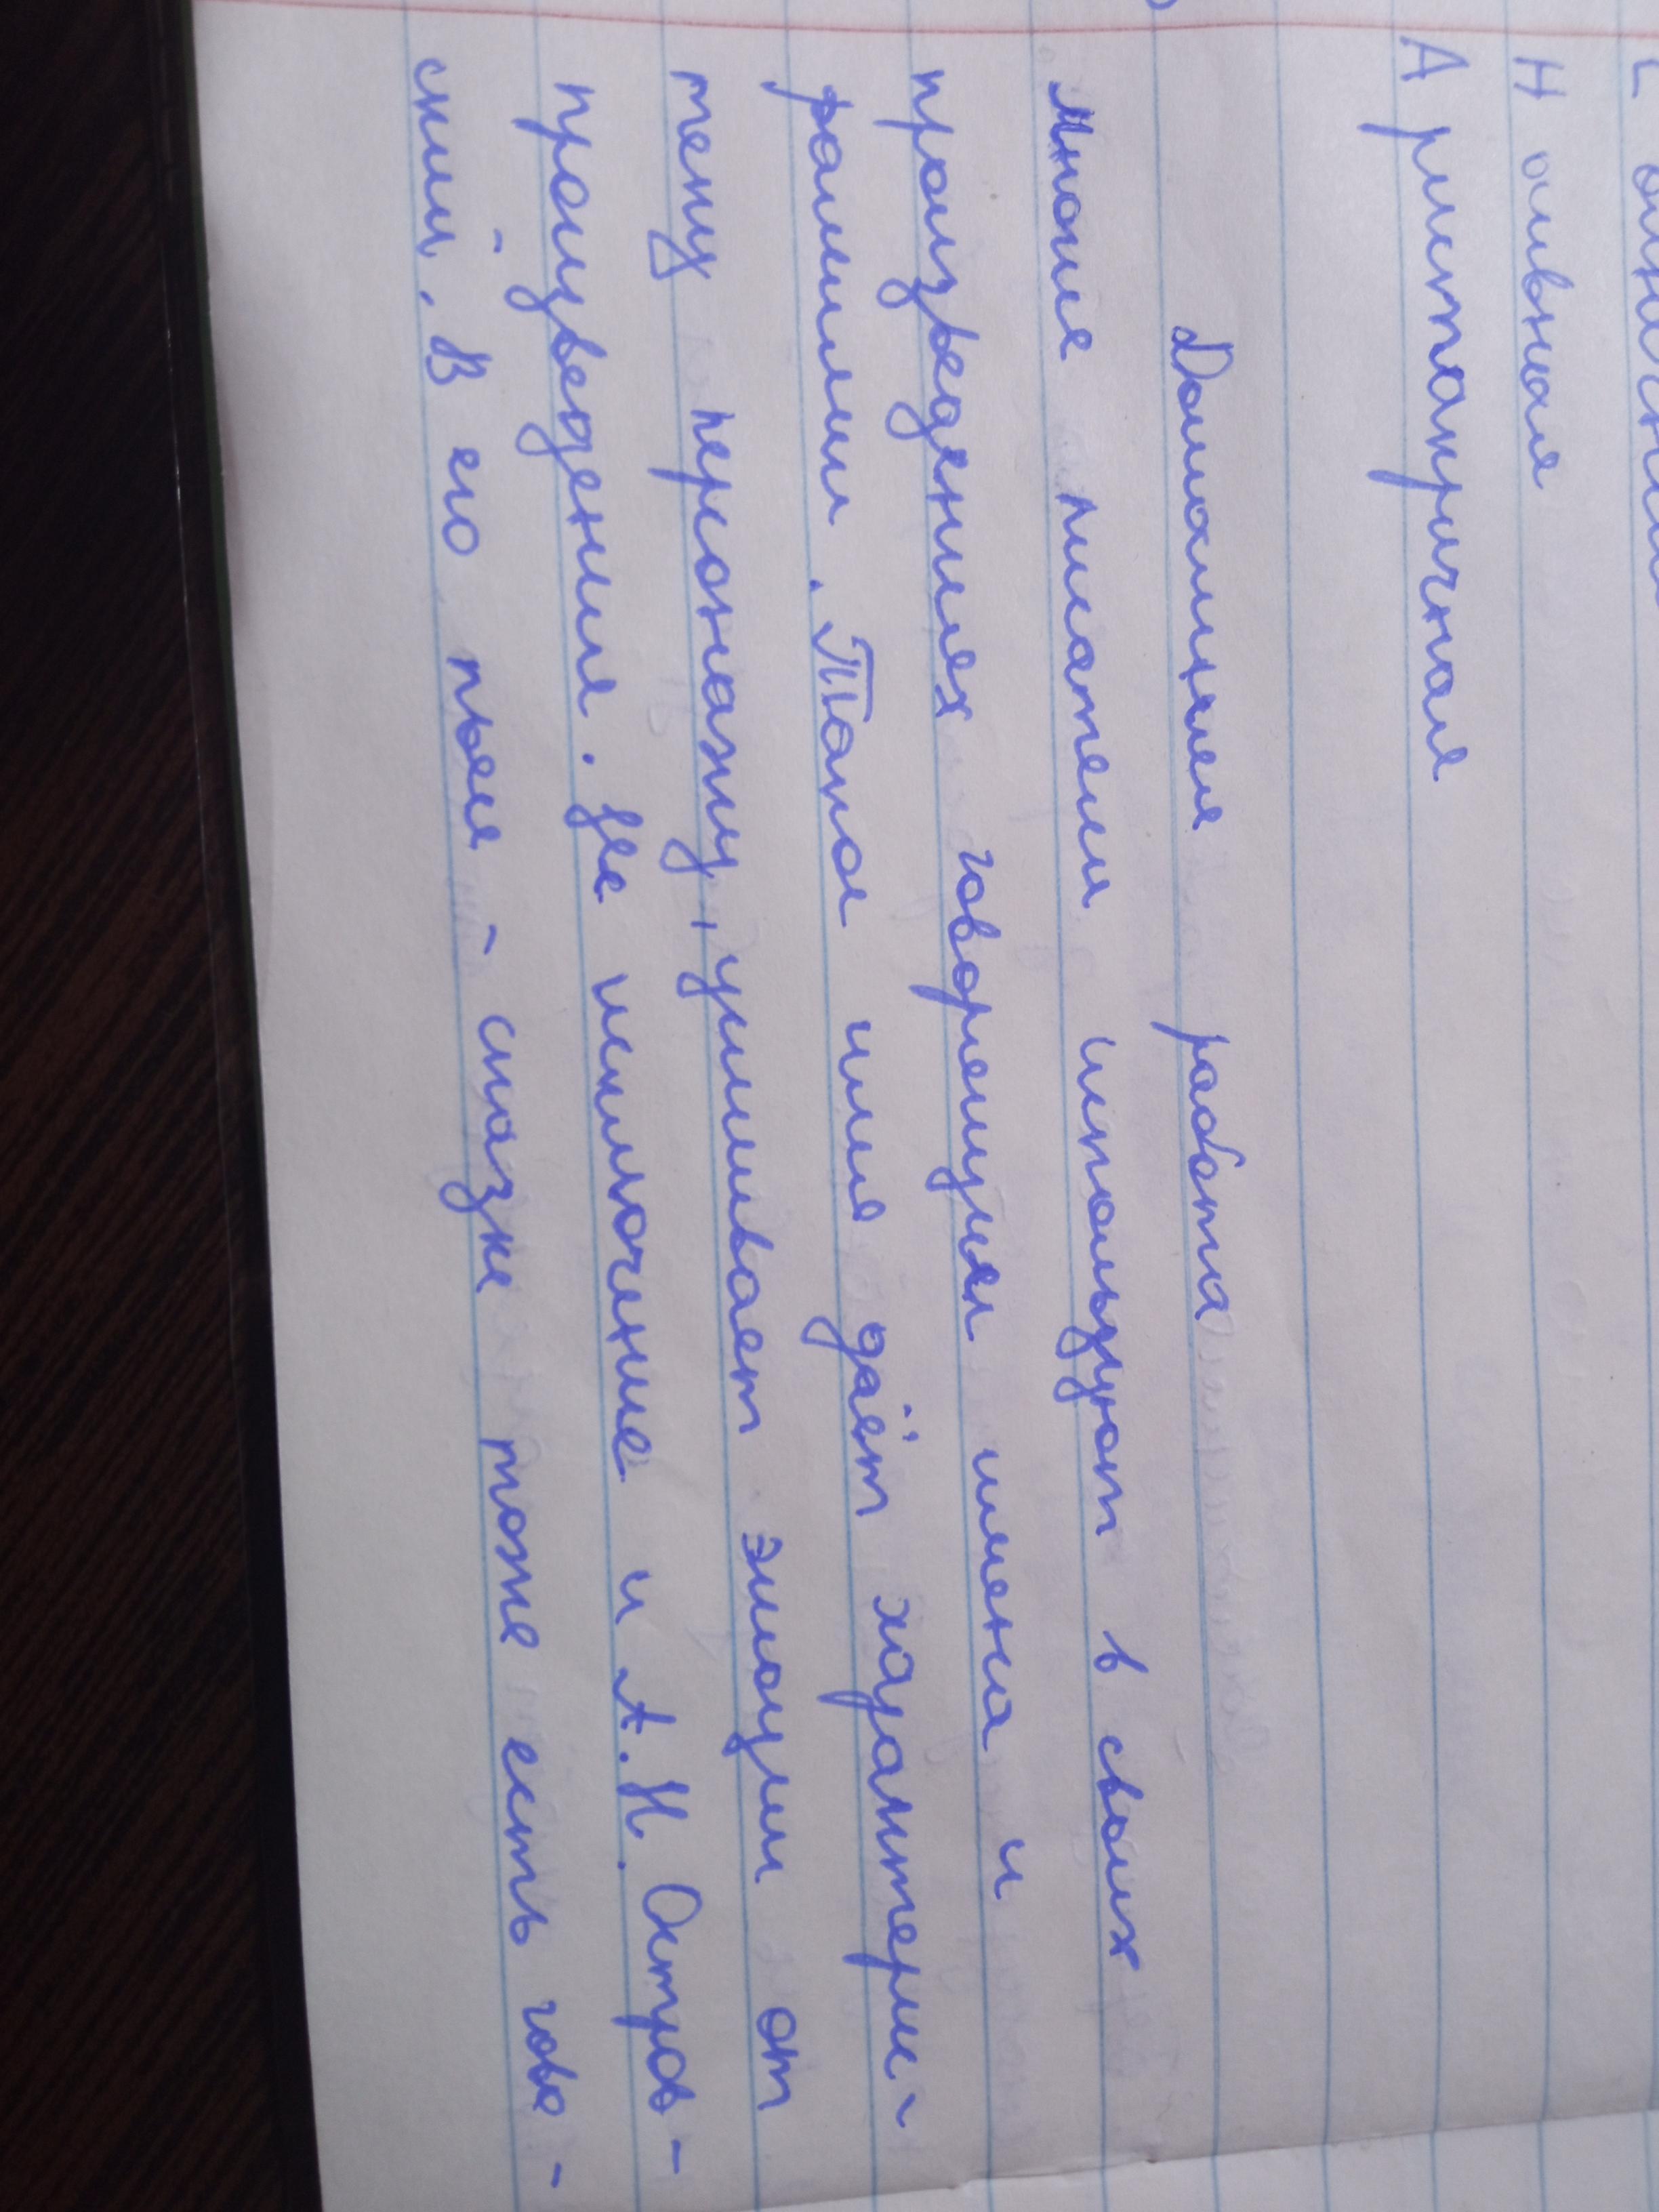 Наивная
Аристократичная
Домашняя работа
Многие писатели используют в своих
произведениях говорящие имена и
фамилии. Такое имя даёт характерис-
тику персонажу, усиливает эмоции от
произведения. Не исключение и А.Н. Остров-
ский. В его пьесе - сказке тоже есть гово-